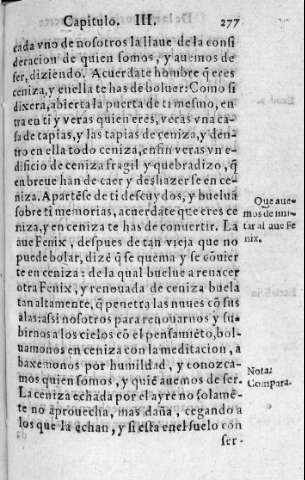 Capitulo. III. 277
cada vno de nosotros la llaue de la consi
deracion de quien somos, y auemos de
ser, diziendo. Acuerdate hombre q̃ eres
ceniza, y en ella te has de boluer: Como si
dixera, abierta la puerta de ti mesmo, en-
tra en ti y veras quien eres, veras vna ca-
sa de tapias, y las tapias de ceniza, y den-
tro en ella todo ceniza, en fin veras vn e-
dificio de ceniza fragil y quebradizo, q̃
en breue han de caer y deshazerse en ce-
niza. Apartẽse de ti descuydos, y bueluã
sobre ti memorias, acuerdate que eres ce
niza, y en ceniza te has de conuertir. La
aue Fenix, despues de tan vieja que no
puede bolar, dizẽ q̃ se quema y se cõuier
te en ceniza: de la qual buelue a renacer
otra Fenix, y renouada de ceniza buela
tan altamente, q̃ penetra las nuues cõ sus
alas: assi nosotros para renouarnos y su-
birnos a los cielos cõ el pensamiẽto, bol-
uamonos en ceniza con la meditacion, a
baxemonos por humildad, y conozca-
mos quien somos, y quiẽ auemos de ser.
La ceniza echada por el ayre no solamẽ-
te no aprouecha, mas daña, cegando a
los que la echan, y si esta en el suelo con
ser-
Que aue-
mos de imi-
tar al aue Fe
nix.
Nota:
Compara.